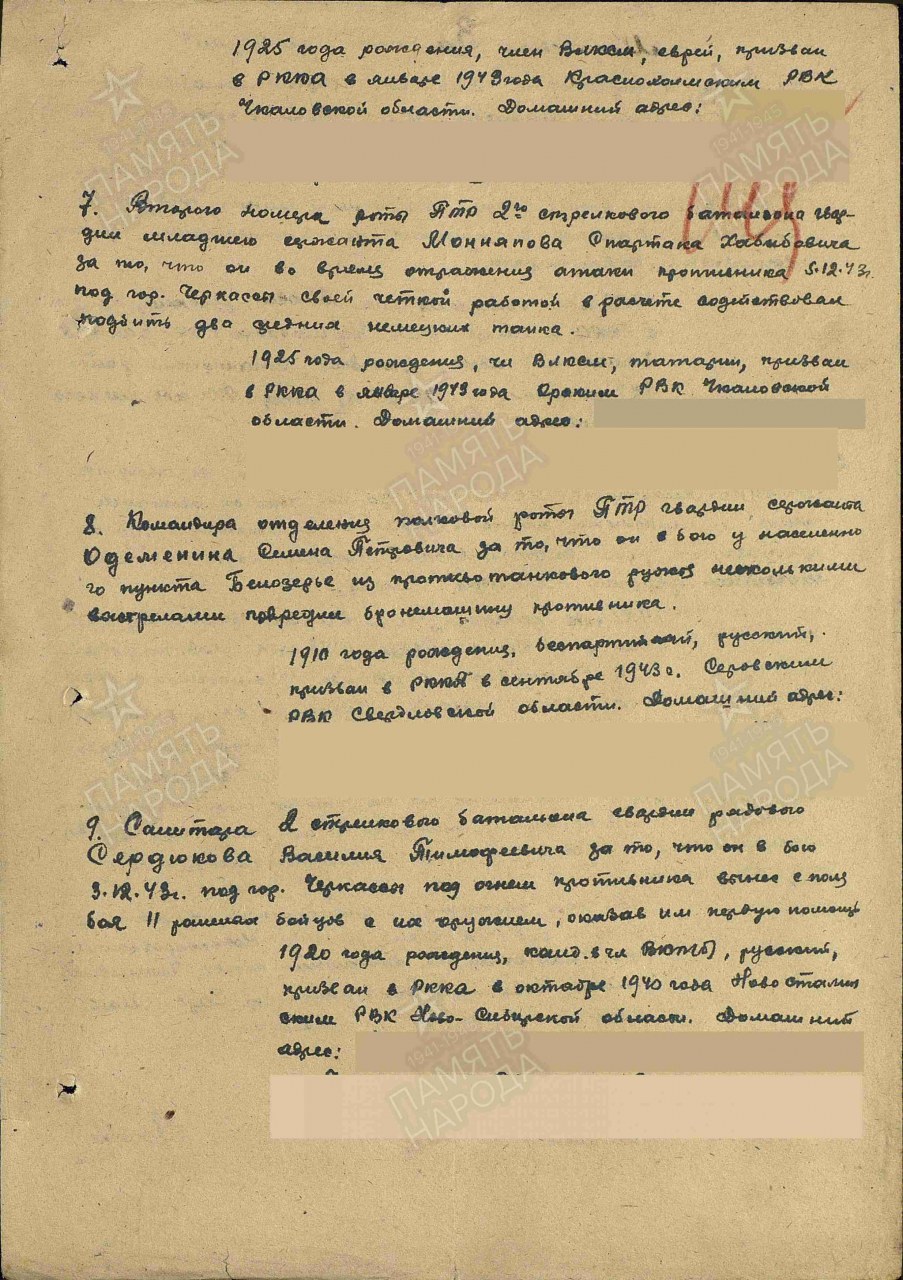 1925 года рождения, член ВЛКСМ, еврей, призван
в РККА в январе 1943 года Краснохолмским РВК
Чкаловской области. Домашний адрес:
7. Второго номера роты ПТР 2го стрелкового батальона гвар-
дии младшего сержанта Моннапова Спартака Хабибовича
за то, что он во время отражения атаки противника 5.12.43г.
под гор. Черкассы своей четкой работой в расчете содействовал
подбить два средних немецких танка.
1925 года рождения, чл ВЛКСМ, татарин, призван
в РККА в январе 1943 года Орским РВК Чкаловской
области. Домашний адрес:
8. Командира отделения полковой роты ПТР гвардии сержанта
Одеменина Семена Петровича за то, что он в бою у населенно
го пункта Белозерье из противотанкового ружья несколькими
выстрелами повредил бронемашину противника.
1910 года рождения, беспартийный, русский,
призван в РККА в сентябре 1943г. Серовским
РВК Свердловской области. Домашний адрес:
9. Санитара 2 стрелкового батальона гвардии рядового
Сердюкова Василия Тимофеевича за то, что он в бою
3.12.43г. под гор. Черкассы под огнем противника вынес с поля
боя 11 раненых бойцов с их оружием, оказав им первую помощь
1920 года рождения, канд. в чл ВКП(б), русский,
призван в РККА в октябре 1940 года Ново Сталин
ским РВК Ново-Сибирской области. Домашний
адрес:
ПАМЯТЬ
НАРОДА
1941-1945